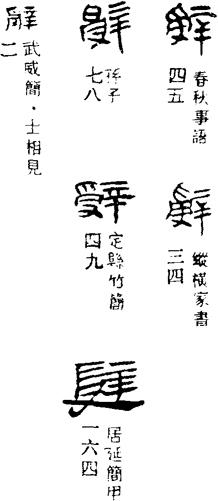 辭
春秋事語
四五
辭
縱橫家書
三四
辭
孫子
七八
辭
定縣竹簡
四九
辭
居延簡甲
一六四
辭
武威簡·士相見
二